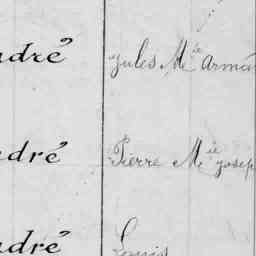 ndré Jules Mie Arman
ndré Pierre Mie Josep
ndré Louis